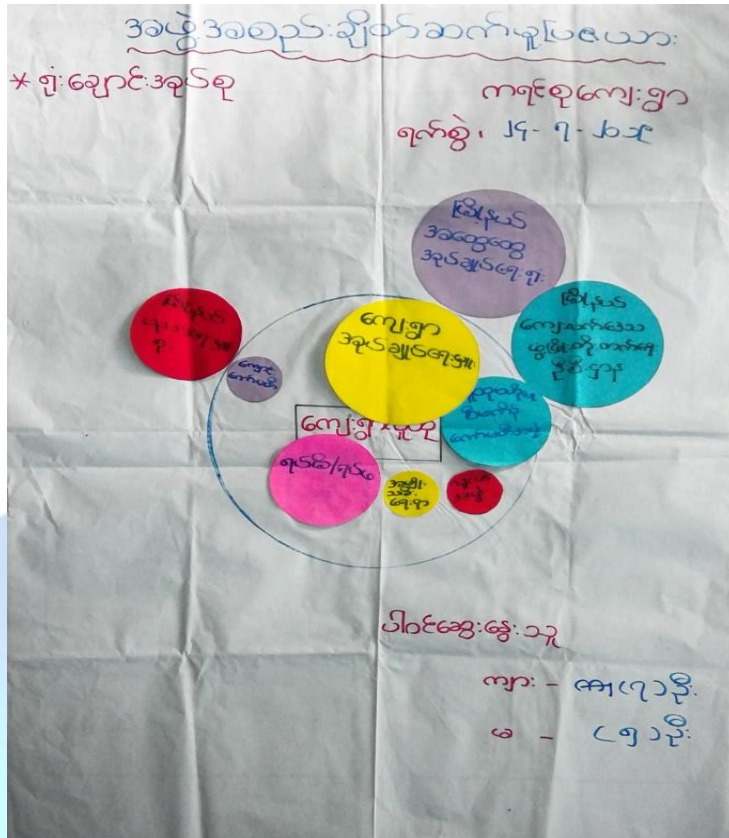 အဖွဲ့အစည်းချိတ်ဆက်မှုပြဇယား
* ရုံးချောင်းအုပ်စု
ကရင်စုကျေးရွာ
ရက်စွဲ၊ ၂၄-၇-၂၀၁၉
မြို့နယ်
အထွေထွေ
အုပ်ချုပ်ရေးရုံး
မြို့နယ်
ကျေးလက်ဒေသ
ဖွံ့ဖြိုးတိုးတက်ရေး
ဦးစီးဌာန
မြို့နယ်
ကျေးရွာ
အုပ်ချုပ်ရေးမှူး
ကျောင်း
ကော်မတီ
ကော်မတီ
ကျေးရွာလူထု
ရပ်မိ/ရပ်ဖ
အမျိုး
သမီး
ရေးရာ
ပါဝင်ဆွေးနွေးသူ
ကျား - (၇)ဦး
မ - (၅)ဦး